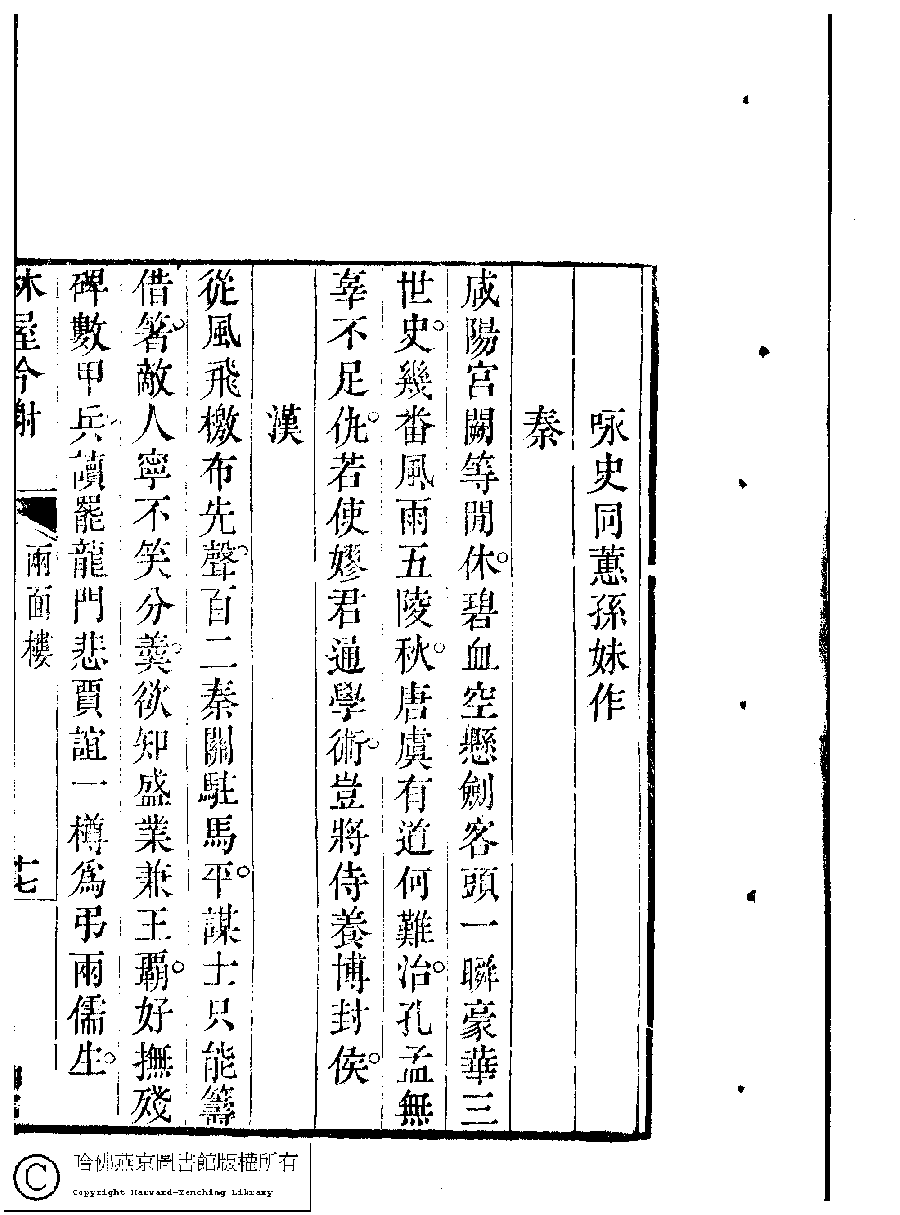 咏史同蕙孫妹作
秦
咸陽宮闕等閒休。碧血空懸劍客頭一瞬豪華三
世史。幾畨風雨五陵秋。唐虞有道何難治。孔孟無
辜不足仇。若使嫪君通學術。豈將侍養博封侯。
漢
從風飛檄布先聲。百二秦關駐馬平。謀士只能籌
借箸。敵人寧不笑分羹。欲知盛業兼王覇。好撫殘
碑數甲兵讀罷龍門悲賈誼一樽爲弔兩儒生。
林屋今謝
兩面樓
十七
哈佛燕京圖書館版權所有
Copyright Harvard-Yenching Library